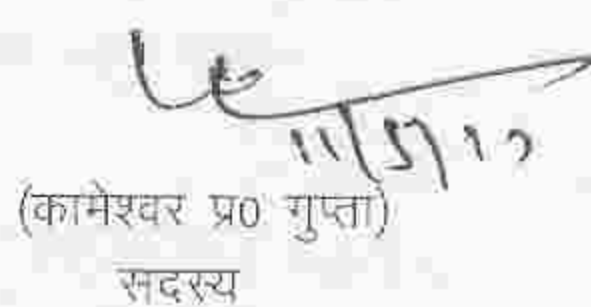 11/5/10
(कामेश्वर प्र0 गुप्ता)
सदस्य